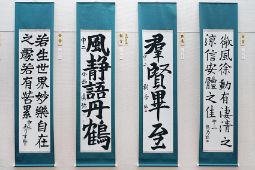 微風徐動有淒清之
涼信安體之佳
羣賢畢至
風靜語丹鶴
若生世界妙樂自在
之處若有苦累